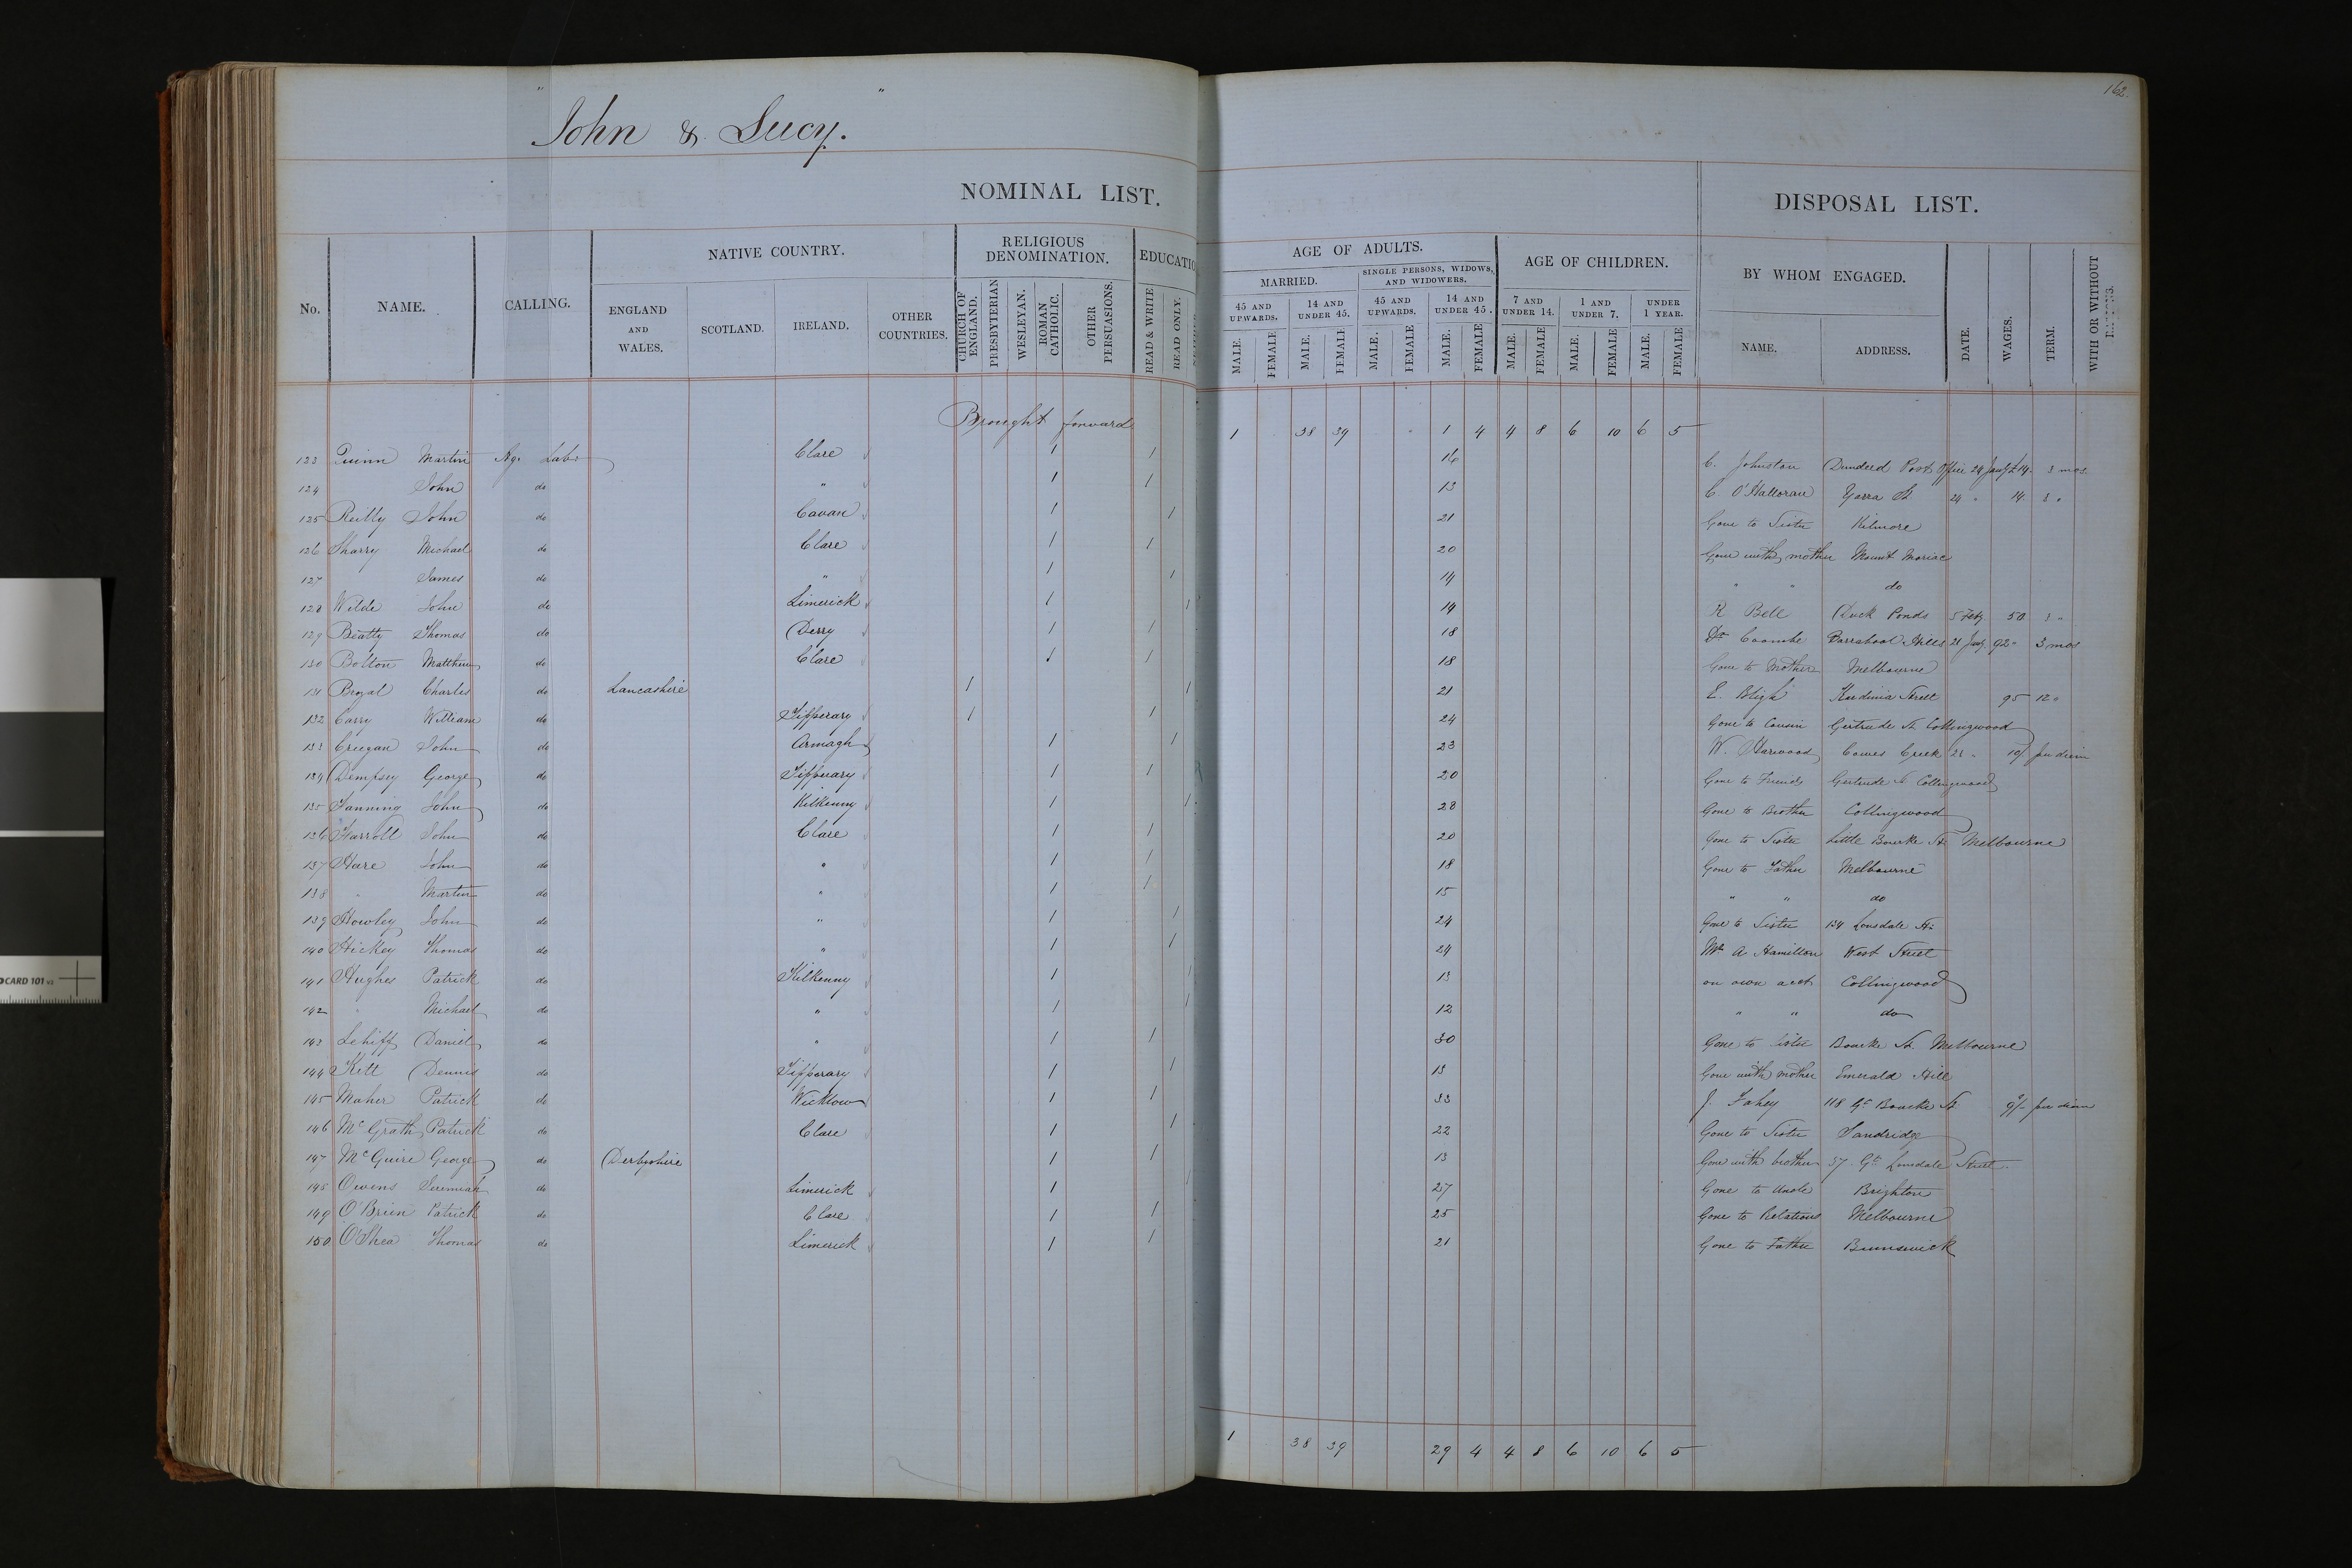 162.
John & Lucy.
NOMINAL LIST.
DISPOSAL LIST.
No.
NAME.
CALLING.
NATIVE COUNTRY.
ENGLAND AND WALES.
SCOTLAND.
IRELAND.
OTHER COUNTRIES.
RELIGIOUS DENOMINATION.
CHURCH OF ENGLAND.
PRESBYTERIAN
WESLEYAN.
ROMAN CATHOLIC.
OTHER PERSUASIONS.
EDUCATIO
READ & WRITE
READ ONLY.
AGE OF ADULTS.
MARRIED.
SINGLE PERSONS, WIDOWS, AND WIDOWERS.
45 AND UPWARDS.
14 AND UNDER 45.
45 AND UPWARDS.
14 AND UNDER 45.
AGE OF CHILDREN.
7 AND UNDER 14.
1 AND UNDER 7.
UNDER 1 YEAR.
MALE. FEMALE MALE. FEMALE MALE. FEMALE MALE. FEMALE MALE. FEMALE MALE. FEMALE MALE. FEMALE
BY WHOM ENGAGED.
NAME.
ADDRESS.
DATE.
WAGES.
TERM.
WITH OR WITHOUT
Brought forward 1 38 39 1 4 4 8 6 10 6 5
123 Quinn Martin Ag. Labr Clare 1 1 16 C. Johnston Dundeed Post Office 24 Jany £14. 3 mos
124 John do " 1 1 13 C. O'Halloran Yarra St 24 " 14 3 "
125 Reilly John do Cavan 1 1 21 Gone to Sister Kilmore
126 Sharry Michael do Clare 1 1 20 Gone with mother Mount Moriac
127 James do " 1 1 14 " " do
128 Wilde John do Limerick 1 1 19 R Bell Duck Ponds 5 Feby 50 3 "
129 Beatty Thomas do Derry 1 1 18 Dr Coombe Barrabool Hills 21 Jany 92 " 3 mos
130 Bolton Matthew do Clare 1 1 18 Gone to Mother Melbourne
131 Charles do Lancashire 1 1 21 E. Bligh Kardinia Street 95 12 "
132 Carry William do Tipperary 1 1 24 Gone to Cousin Gertrude St. Collingwood
133 Creegan John do Armagh 1 1 23 W. Harwood Cowes Creek 22 " 10/ per diem
134 Dempsey George do Tipperary 1 1 20 Gone to Friends Gertrude St Collingwood
135 Fanning John do Kilkenny 1 1 28 Gone to Brother Collingwood
136 Farroll John do Clare 1 1 20 Gone to Sister Little Bourke St Melbourne
137 Hare John do " 1 1 18 Gone to Father Melbourne
138 " Martin do " 1 1 15 " " do
139 Howley John do " 1 1 24 Gone to Sister 134 Lonsdale St
140 Hickey Thomas do " 1 1 24 Mr A Hamilton West Street
141 Hughes Patrick do Kilkenny 1 1 13 on own acct Collingwood
142 " Michael do " 1 1 12 " " do
143 Lehiff Daniel do " 1 1 30 Gone to Sister Bourke St. Melbourne
144 Kett Dennis do Tipperary 1 1 13 Gone with mother Emerald Hill
145 Maher Patrick do Wicklow 1 1 33 J. Fahey 118 Gt Bourke St 9/- per diem
146 McGrath Patrick do Clare 1 1 22 Gone to Sister Sandridge
147 McGuire George do Derbyshire 1 1 13 Gone with brother 37 Gt Lonsdale Street
148 Owens Jeremiah do Limerick 1 1 27 Gone to Uncle Brighton
149 O'Brien Patrick do Clare 1 1 25 Gone to Relations Melbourne
150 O'Shea Thomas do Limerick 1 1 21 Gone to Father Brunswick
1 38 39 29 4 4 8 6 10 6 5
CARD 101 v3